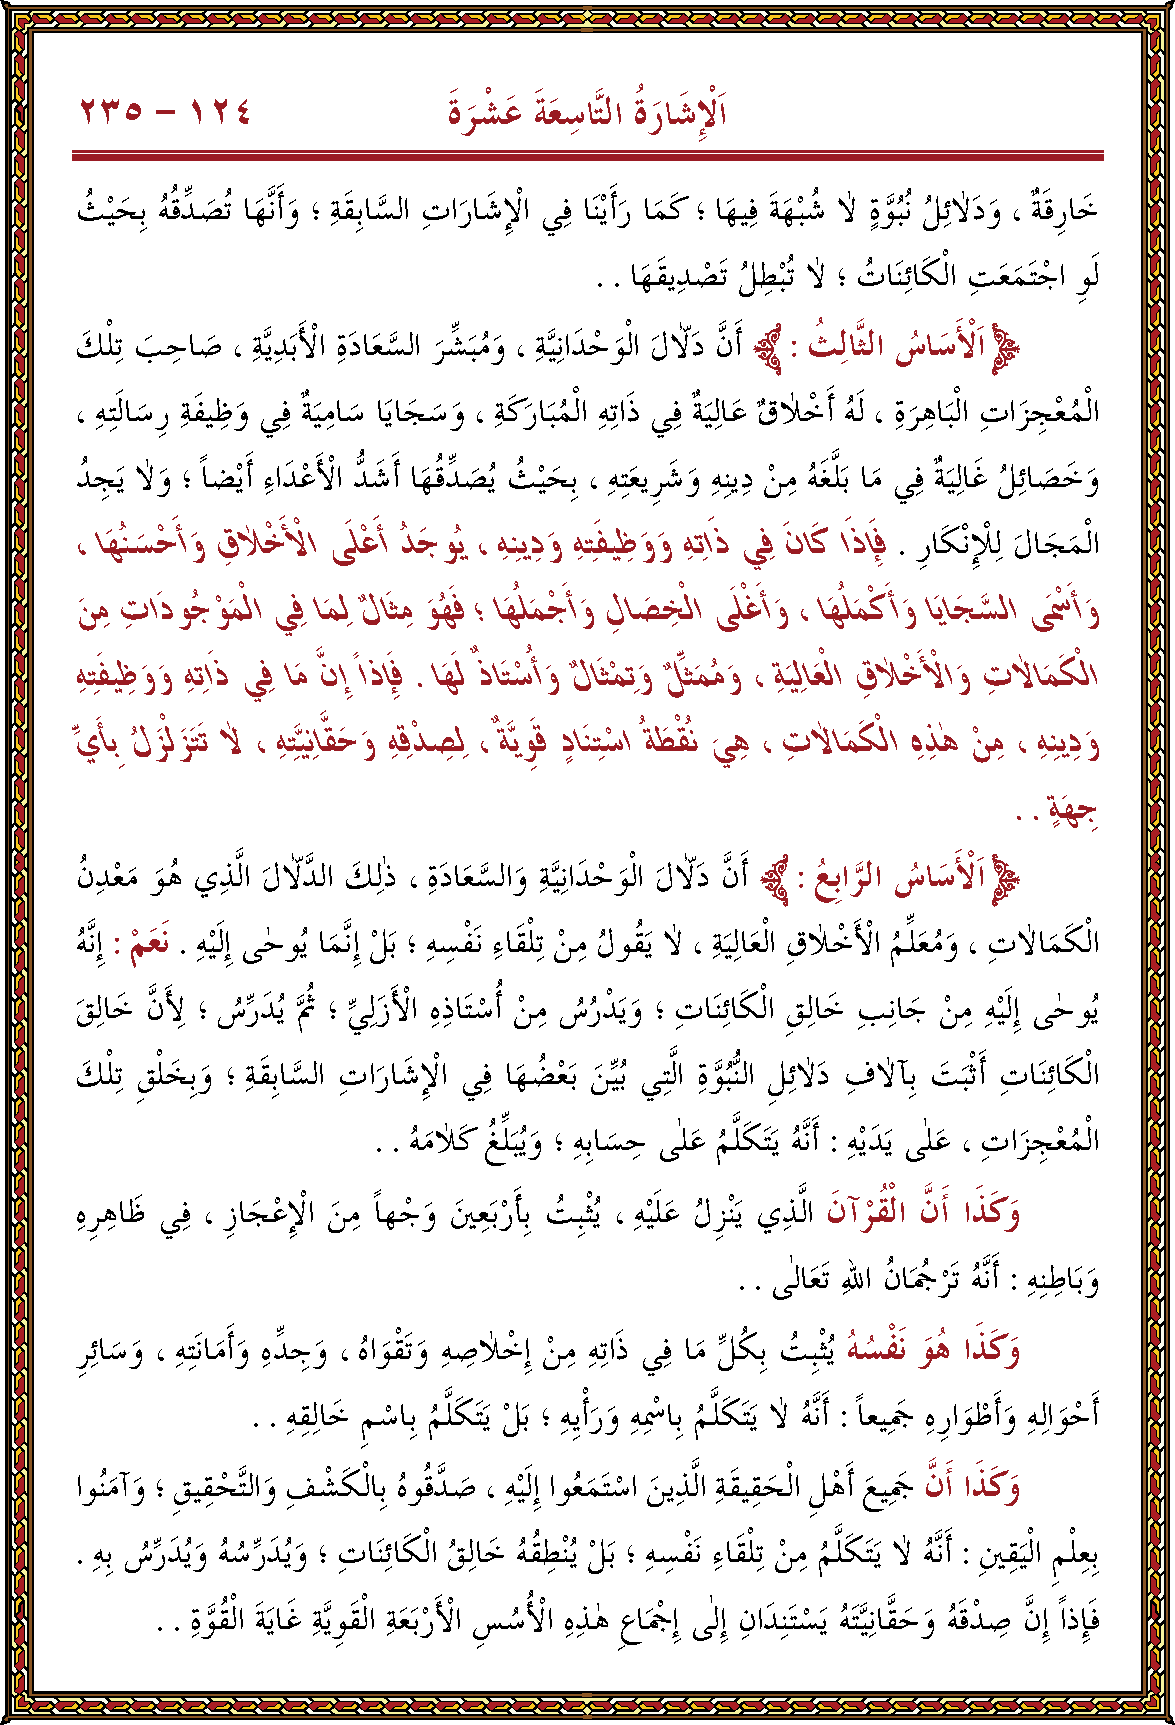 اَلْإِشَارَةُ التَّاسِعَةَ عَشْرَةَ ١٢٤ – ٢٣٥
خَارِقَةٌ ، وَدَلاٰئِلُ نُبُوَّةٍ لاٰ شُبْهَةَ فِيهَا ؛ كَمَا رَأَيْنَا فِي الْإِشَارَاتِ السَّابِقَةِ ؛ وَأَنَّهَا تُصَدِّقُهُ بِحَيْثُ
لَوِ اجْتَمَعَتِ الْكَائِنَاتُ ؛ لاٰ تُبْطِلُ تَصْدِيقَهَا . .
﴿ اَلْأَسَاسُ الثَّالِثُ : ﴾ أَنَّ دَلاّٰلَ الْوَحْدَانِيَّةِ ، وَمُبَشِّرَ السَّعَادَةِ الْأَبَدِيَّةِ ، صَاحِبَ تِلْكَ
الْمُعْجِزَاتِ الْبَاهِرَةِ ، لَهُ أَخْلاٰقٌ عَالِيَةٌ فِي ذَاتِهِ الْمُبَارَكَةِ ، وَسَجَايَا سَامِيَةٌ فِي وَظِيفَةِ رِسَالَتِهِ ،
وَخَصَائِلُ غَالِيَةٌ فِي مَا بَلَّغَهُ مِنْ دِينِهِ وَشَرِيعَتِهِ ، بِحَيْثُ يُصَدِّقُهَا أَشَدُّ الْأَعْدَاءِ أَيْضاً ؛ وَلاٰ يَجِدُ
الْمَجَالَ لِلْإِنْكَارِ . فَإِذَا كَانَ فِي ذَاتِهِ وَوَظِيفَتِهِ وَدِينِهِ ، يُوجَدُ أَعْلَى الْأَخْلاٰقِ وَأَحْسَنُهَا ،
وَأَسْمَى السَّجَايَا وَأَكْمَلُهَا ، وَأَغْلَى الْخِصَالِ وَأَجْمَلُهَا ؛ فَهُوَ مِثَالٌ لِمَا فِي الْمَوْجُودَاتِ مِنَ
الْكَمَالاٰتِ وَالْأَخْلاٰقِ الْعَالِيَةِ ، وَمُمَثِّلٌ وَتِمْثَالٌ وَأُسْتَاذٌ لَهَا . فَإِذاً إِنَّ مَا فِي ذَاتِهِ وَوَظِيفَتِهِ
وَدِينِهِ ، مِنْ هٰذِهِ الْكَمَالاٰتِ ، هِيَ نُقْطَةُ اسْتِنَادٍ قَوِيَّةٌ ، لِصِدْقِهِ وَحَقَّانِيَّتِهِ ، لاٰ تَتَزَلْزَلُ بِأَيِّ
جِهَةٍ . .
﴿ اَلْأَسَاسُ الرَّابِعُ : ﴾ أَنَّ دَلاّٰلَ الْوَحْدَانِيَّةِ وَالسَّعَادَةِ ، ذٰلِكَ الدَّلاّٰلَ الَّذِي هُوَ مَعْدِنُ
الْكَمَالاٰتِ ، وَمُعَلِّمُ الْأَخْلاٰقِ الْعَالِيَةِ ، لاٰ يَقُولُ مِنْ تِلْقَاءِ نَفْسِهِ ؛ بَلْ إِنَّمَا يُوحٰى إِلَيْهِ . نَعَمْ : إِنَّهُ
يُوحٰى إِلَيْهِ مِنْ جَانِبِ خَالِقِ الْكَائِنَاتِ ؛ وَيَدْرُسُ مِنْ أُسْتَاذِهِ الْأَزَلِيِّ ؛ ثُمَّ يُدَرِّسُ ؛ لِأَنَّ خَالِقَ
الْكَائِنَاتِ أَثْبَتَ بِآلاٰفِ دَلاٰئِلِ النُّبُوَّةِ الَّتِي بُيِّنَ بَعْضُهَا فِي الْإِشَارَاتِ السَّابِقَةِ ؛ وَبِخَلْقِ تِلْكَ
الْمُعْجِزَاتِ ، عَلٰى يَدَيْهِ : أَنَّهُ يَتَكَلَّمُ عَلٰى حِسَابِهِ ؛ وَيُبَلِّغُ كَلاٰمَهُ . .
وَكَذَا أَنَّ الْقُرْآنَ الَّذِي يَنْزِلُ عَلَيْهِ ، يُثْبِتُ بِأَرْبَعِينَ وَجْهاً مِنَ الْإِعْجَازِ ، فِي ظَاهِرِهِ
وَبَاطِنِهِ : أَنَّهُ تَرْجُمَانُ اللهِ تَعَالٰى . .
وَكَذَا هُوَ نَفْسُهُ يُثْبِتُ بِكُلِّ مَا فِي ذَاتِهِ مِنْ إِخْلاٰصِهِ وَتَقْوَاهُ ، وَجِدِّهِ وَأَمَانَتِهِ ، وَسَائِرِ
أَحْوَالِهِ وَأَطْوَارِهِ جَمِيعاً : أَنَّهُ لاٰ يَتَكَلَّمُ بِاسْمِهِ وَرَأْيِهِ ؛ بَلْ يَتَكَلَّمُ بِاسْمِ خَالِقِهِ . .
وَكَذَا أَنَّ جَمِيعَ أَهْلِ الْحَقِيقَةِ الَّذِينَ اسْتَمَعُوا إِلَيْهِ ، صَدَّقُوهُ بِالْكَشْفِ وَالتَّحْقِيقِ ؛ وَآمَنُوا
بِعِلْمِ الْيَقِينِ : أَنَّهُ لاٰ يَتَكَلَّمُ مِنْ تِلْقَاءِ نَفْسِهِ ؛ بَلْ يُنْطِقُهُ خَالِقُ الْكَائِنَاتِ ؛ وَيُدَرِّسُهُ وَيُدَرِّسُ بِهِ .
فَإِذاً إِنَّ صِدْقَهُ وَحَقَّانِيَّتَهُ يَسْتَنِدَانِ إِلٰى إِجْمَاعِ هٰذِهِ الْأُسُسِ الْأَرْبَعَةِ الْقَوِيَّةِ غَايَةَ الْقُوَّةِ . .